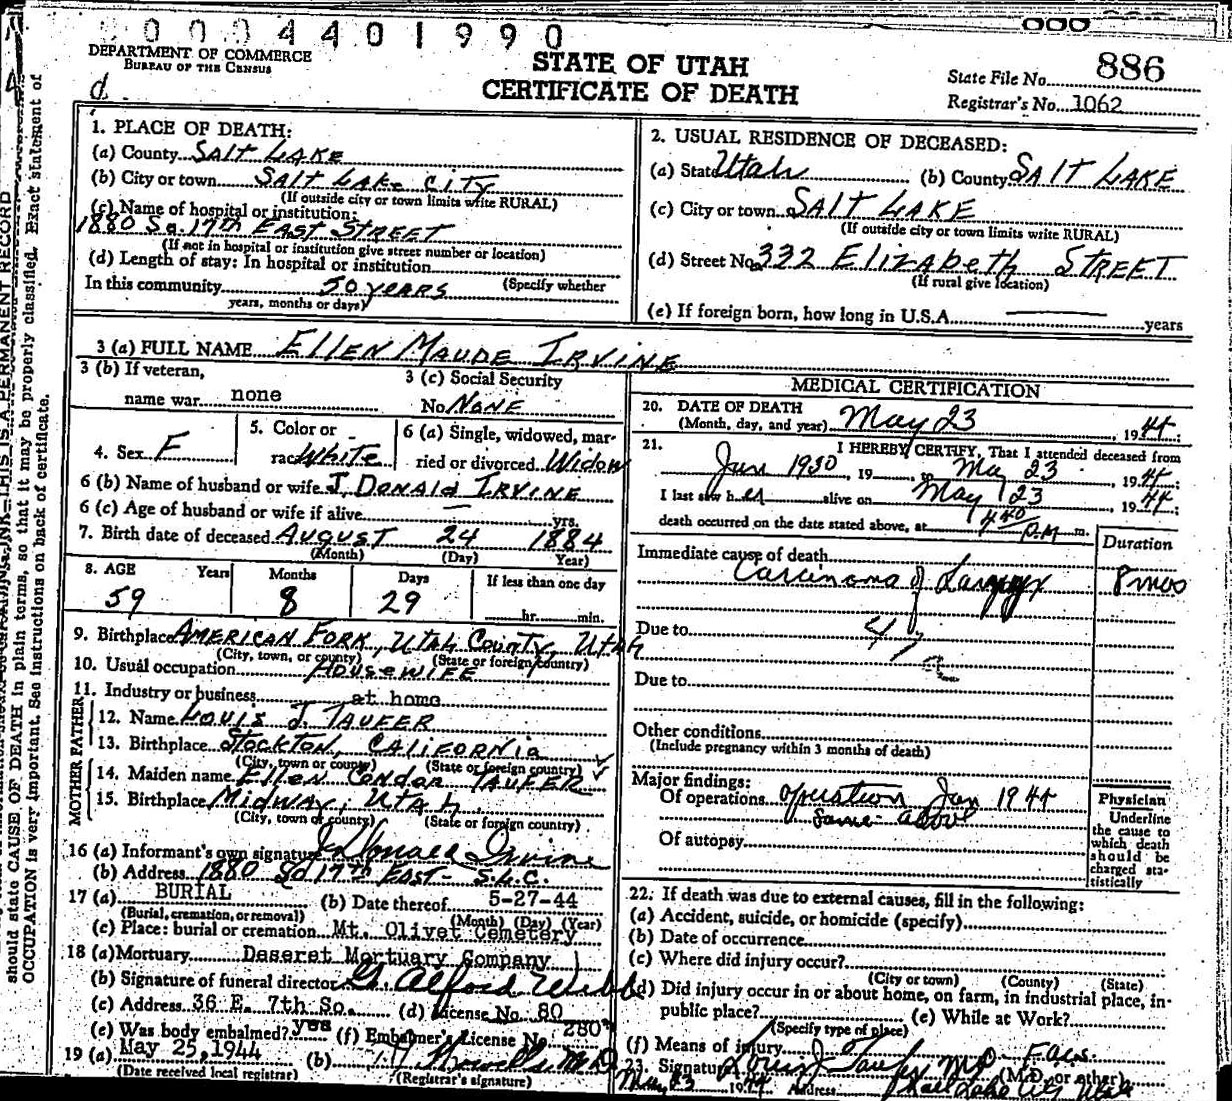 0 0 0 4 4 0 1 9 9 0
DEPARTMENT OF COMMERCE
BUREAU OF THE CENSUS
d.
STATE OF UTAH
CERTIFICATE OF DEATH
State File No. 886
Registrar's No. 1062
1. PLACE OF DEATH:
(a) County SALT LAKE
(b) City or town SALT LAKE CITY
(If outside city or town limits write RURAL)
(c) Name of hospital or institution:
1880 So. 17th EAST STREET
(If not in hospital or institution give street number or location)
(d) Length of stay: In hospital or institution
In this community 50 YEARS (Specify whether
years, months or days)
2. USUAL RESIDENCE OF DECEASED:
(a) State Utah (b) County SALT LAKE
(c) City or town SALT LAKE
(If outside city or town limits write RURAL)
(d) Street No. 332 Elizabeth STREET
(If rural give location)
(e) If foreign born, how long in U.S.A. years
3 (a) FULL NAME ELLEN MAUDE IRVINE
3 (b) If veteran,
name war none
3 (c) Social Security
No. NONE
4. Sex F
5. Color or
race White
6 (a) Single, widowed, mar-
ried or divorced Widow
6 (b) Name of husband or wife J. DONALD IRVINE
6 (c) Age of husband or wife if alive — yrs.
7. Birth date of deceased AUGUST 24 1884
(Month) (Day) Year)
8. AGE Years Months Days If less than one day
59 8 29 hr. min.
9. Birthplace AMERICAN FORK, UTAH COUNTY, UTAH
(City, town, or county) (State or foreign country)
10. Usual occupation HOUSEWIFE
11. Industry or business at home
FATHER
12. Name LOUIS J. TAUFER
13. Birthplace STOCKTON, CALIFORNIA
(City, town or county) (State or foreign country)
MOTHER
14. Maiden name Ellen Condor TAUFER
15. Birthplace MIDWAY, UTAH
(City, town of county) (State or foreign country)
16 (a) Informant's own signature J Donald Irvine
(b) Address 1880 So 17th EAST - S.L.C.
17 (a) BURIAL (b) Date thereof 5-27-44
(Burial, cremation, or removal) (Month) (Day) (Year)
(c) Place: burial or cremation Mt. Olivet Cemetery
18 (a) Mortuary Deseret Mortuary Company
(b) Signature of funeral director G. Alford Webb
(c) Address 36 E. 7th So. (d) License No. 80
(e) Was body embalmed? yes (f) Embalmer's License No. 280
19 (a) May 25, 1944 (b) M.D.
(Date received local registrar) (Registrar's signature)
MEDICAL CERTIFICATION
20. DATE OF DEATH
(Month, day, and year) May 23, 1944;
21. I HEREBY CERTIFY, That I attended deceased from
Jan 1930, 19 to May 23, 1944;
I last saw her alive on May 23, 1944;
death occurred on the date stated above, at 4:40 P.M. m.
Duration
Immediate cause of death
Carcinoma of Larynx 8 mos
Due to 47
Due to
Other conditions
(Include pregnancy within 3 months of death)
Major findings:
Of operations operation Jan 1944
same above
Of autopsy
Physician
Underline
the cause to
which death
should be
charged sta-
tistically
22. If death was due to external causes, fill in the following:
(a) Accident, suicide, or homicide (specify)
(b) Date of occurrence
(c) Where did injury occur?
(City or town) (County) (State)
(d) Did injury occur in or about home, on farm, in industrial place, in-
public place? (e) While at Work?
(Specify type of place)
(f) Means of injury
23. Signature Louis J Taufer MD F.A.C.S. (M.D. or other)
May 23 1944 Address Salt Lake City Utah
should state CAUSE OF DEATH in plain terms, so that it may be properly classified. Exact statement of
OCCUPATION is very important. See instructions on back of certificate.
THIS IS A PERMANENT RECORD